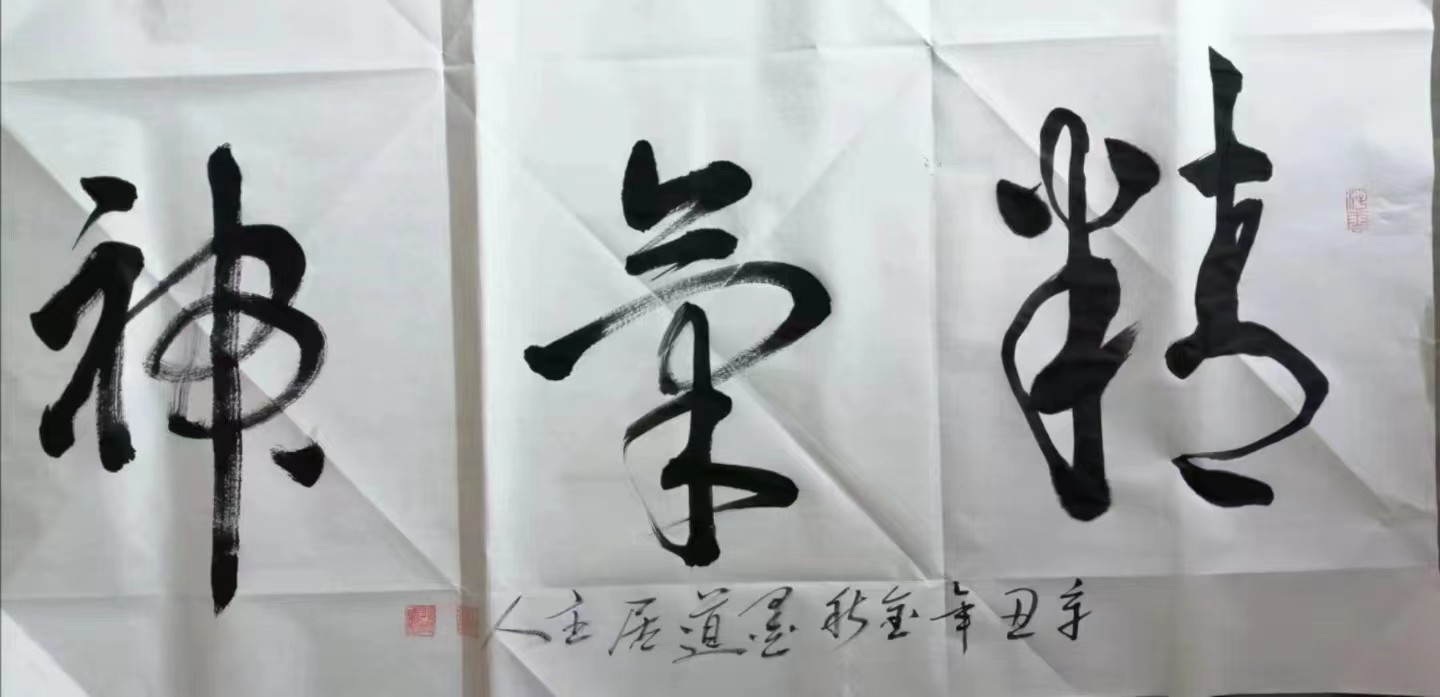 精氣神
辛丑年金秋墨道居主人